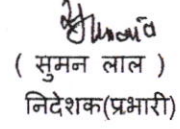 ( सुमन लाल )
निदेशक(प्रभारी)